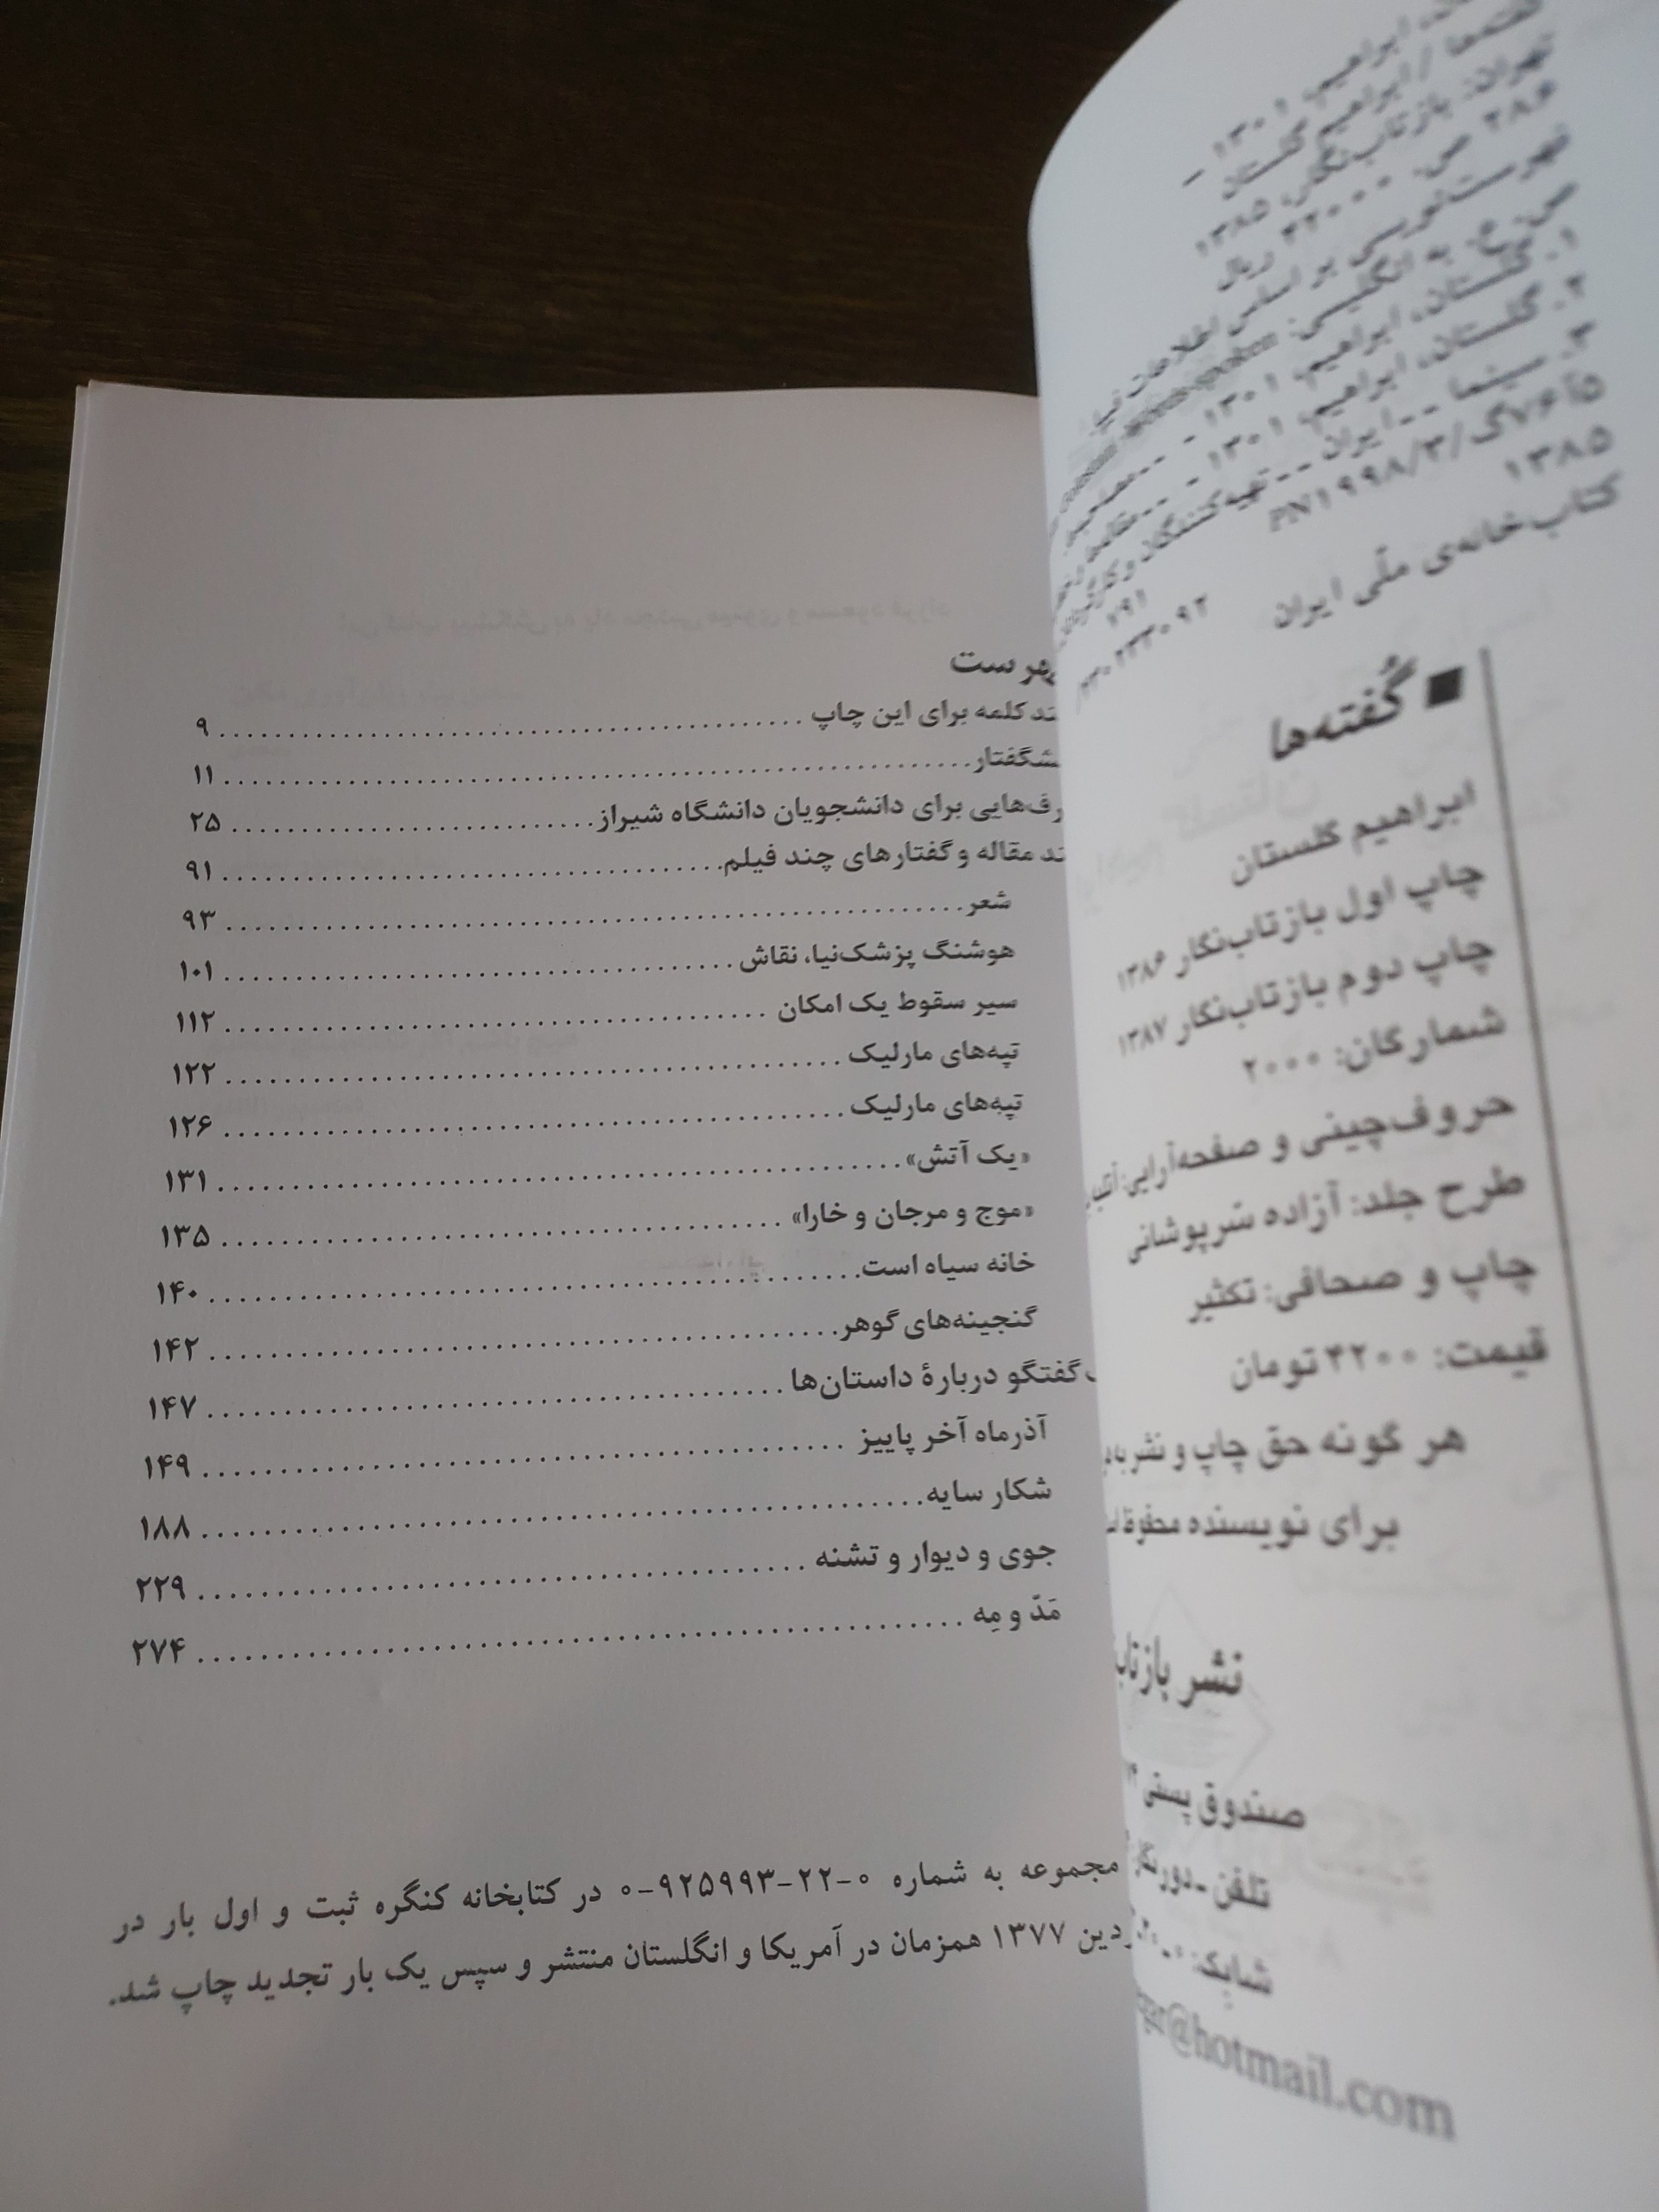 ابراهیم، ۱۳۰۱ –
ابراهیم گلستان
تهران: بازتاب‌نگار، ۱۳۸۵
۲۸۶ ص. ۴۲۰۰۰ ریال
فهرست‌نویسی بر اساس اطلاعات فیپا.
ص. ع. به انگلیسی:
۱. گلستان، ابراهیم، ۱۳۰۱ -
۲. گلستان، ابراهیم، ۱۳۰۱ -
۳. سینما -- ایران -- تهیه‌کنندگان و
PN۱۹۹۸/۳/گ۷۶آ۵
۱۳۸۵
۷۹۱
کتاب‌خانه‌ی ملّی ایران
■ گُفته‌ها
ابراهیم گلستان
چاپ اول بازتاب‌نگار ۱۳۸۶
چاپ دوم بازتاب‌نگار ۱۳۸۷
شمارگان: ۲۰۰۰
حروف‌چینی و صفحه‌آرایی:
طرح جلد: آزاده سَرپوشانی
چاپ و صحافی: تکثیر
قیمت: ۴۲۰۰ تومان
هر گونه حق چاپ و نشر
برای نویسنده محفوظ
نشر
صندوق پستی
تلفن -
شابک:
@hotmail.com
هرست
ند کلمه برای این چاپ ........ ۹
شگفتار ........ ۱۱
رف‌هایی برای دانشجویان دانشگاه شیراز ........ ۲۵
ند مقاله و گفتارهای چند فیلم ........ ۹۱
شعر ........ ۹۳
هوشنگ پزشک‌نیا، نقاش ........ ۱۰۱
سیر سقوط یک امکان ........ ۱۱۲
تپه‌های مارلیک ........ ۱۲۲
تپه‌های مارلیک ........ ۱۲۶
«یک آتش» ........ ۱۳۱
«موج و مرجان و خارا» ........ ۱۳۵
خانه سیاه است ........ ۱۴۰
گنجینه‌های گوهر ........ ۱۴۲
گفتگو دربارهٔ داستان‌ها ........ ۱۴۷
آذرماه آخر پاییز ........ ۱۴۹
شکار سایه ........ ۱۸۸
جوی و دیوار و تشنه ........ ۲۲۹
مَدّ و مِه ........ ۲۷۴
مجموعه به شماره ۰-۲۲-۹۲۵۹۹۳-۰ در کتابخانه کنگره ثبت و اول بار در
ردین ۱۳۷۷ همزمان در آمریکا و انگلستان منتشر و سپس یک بار تجدید چاپ شد.